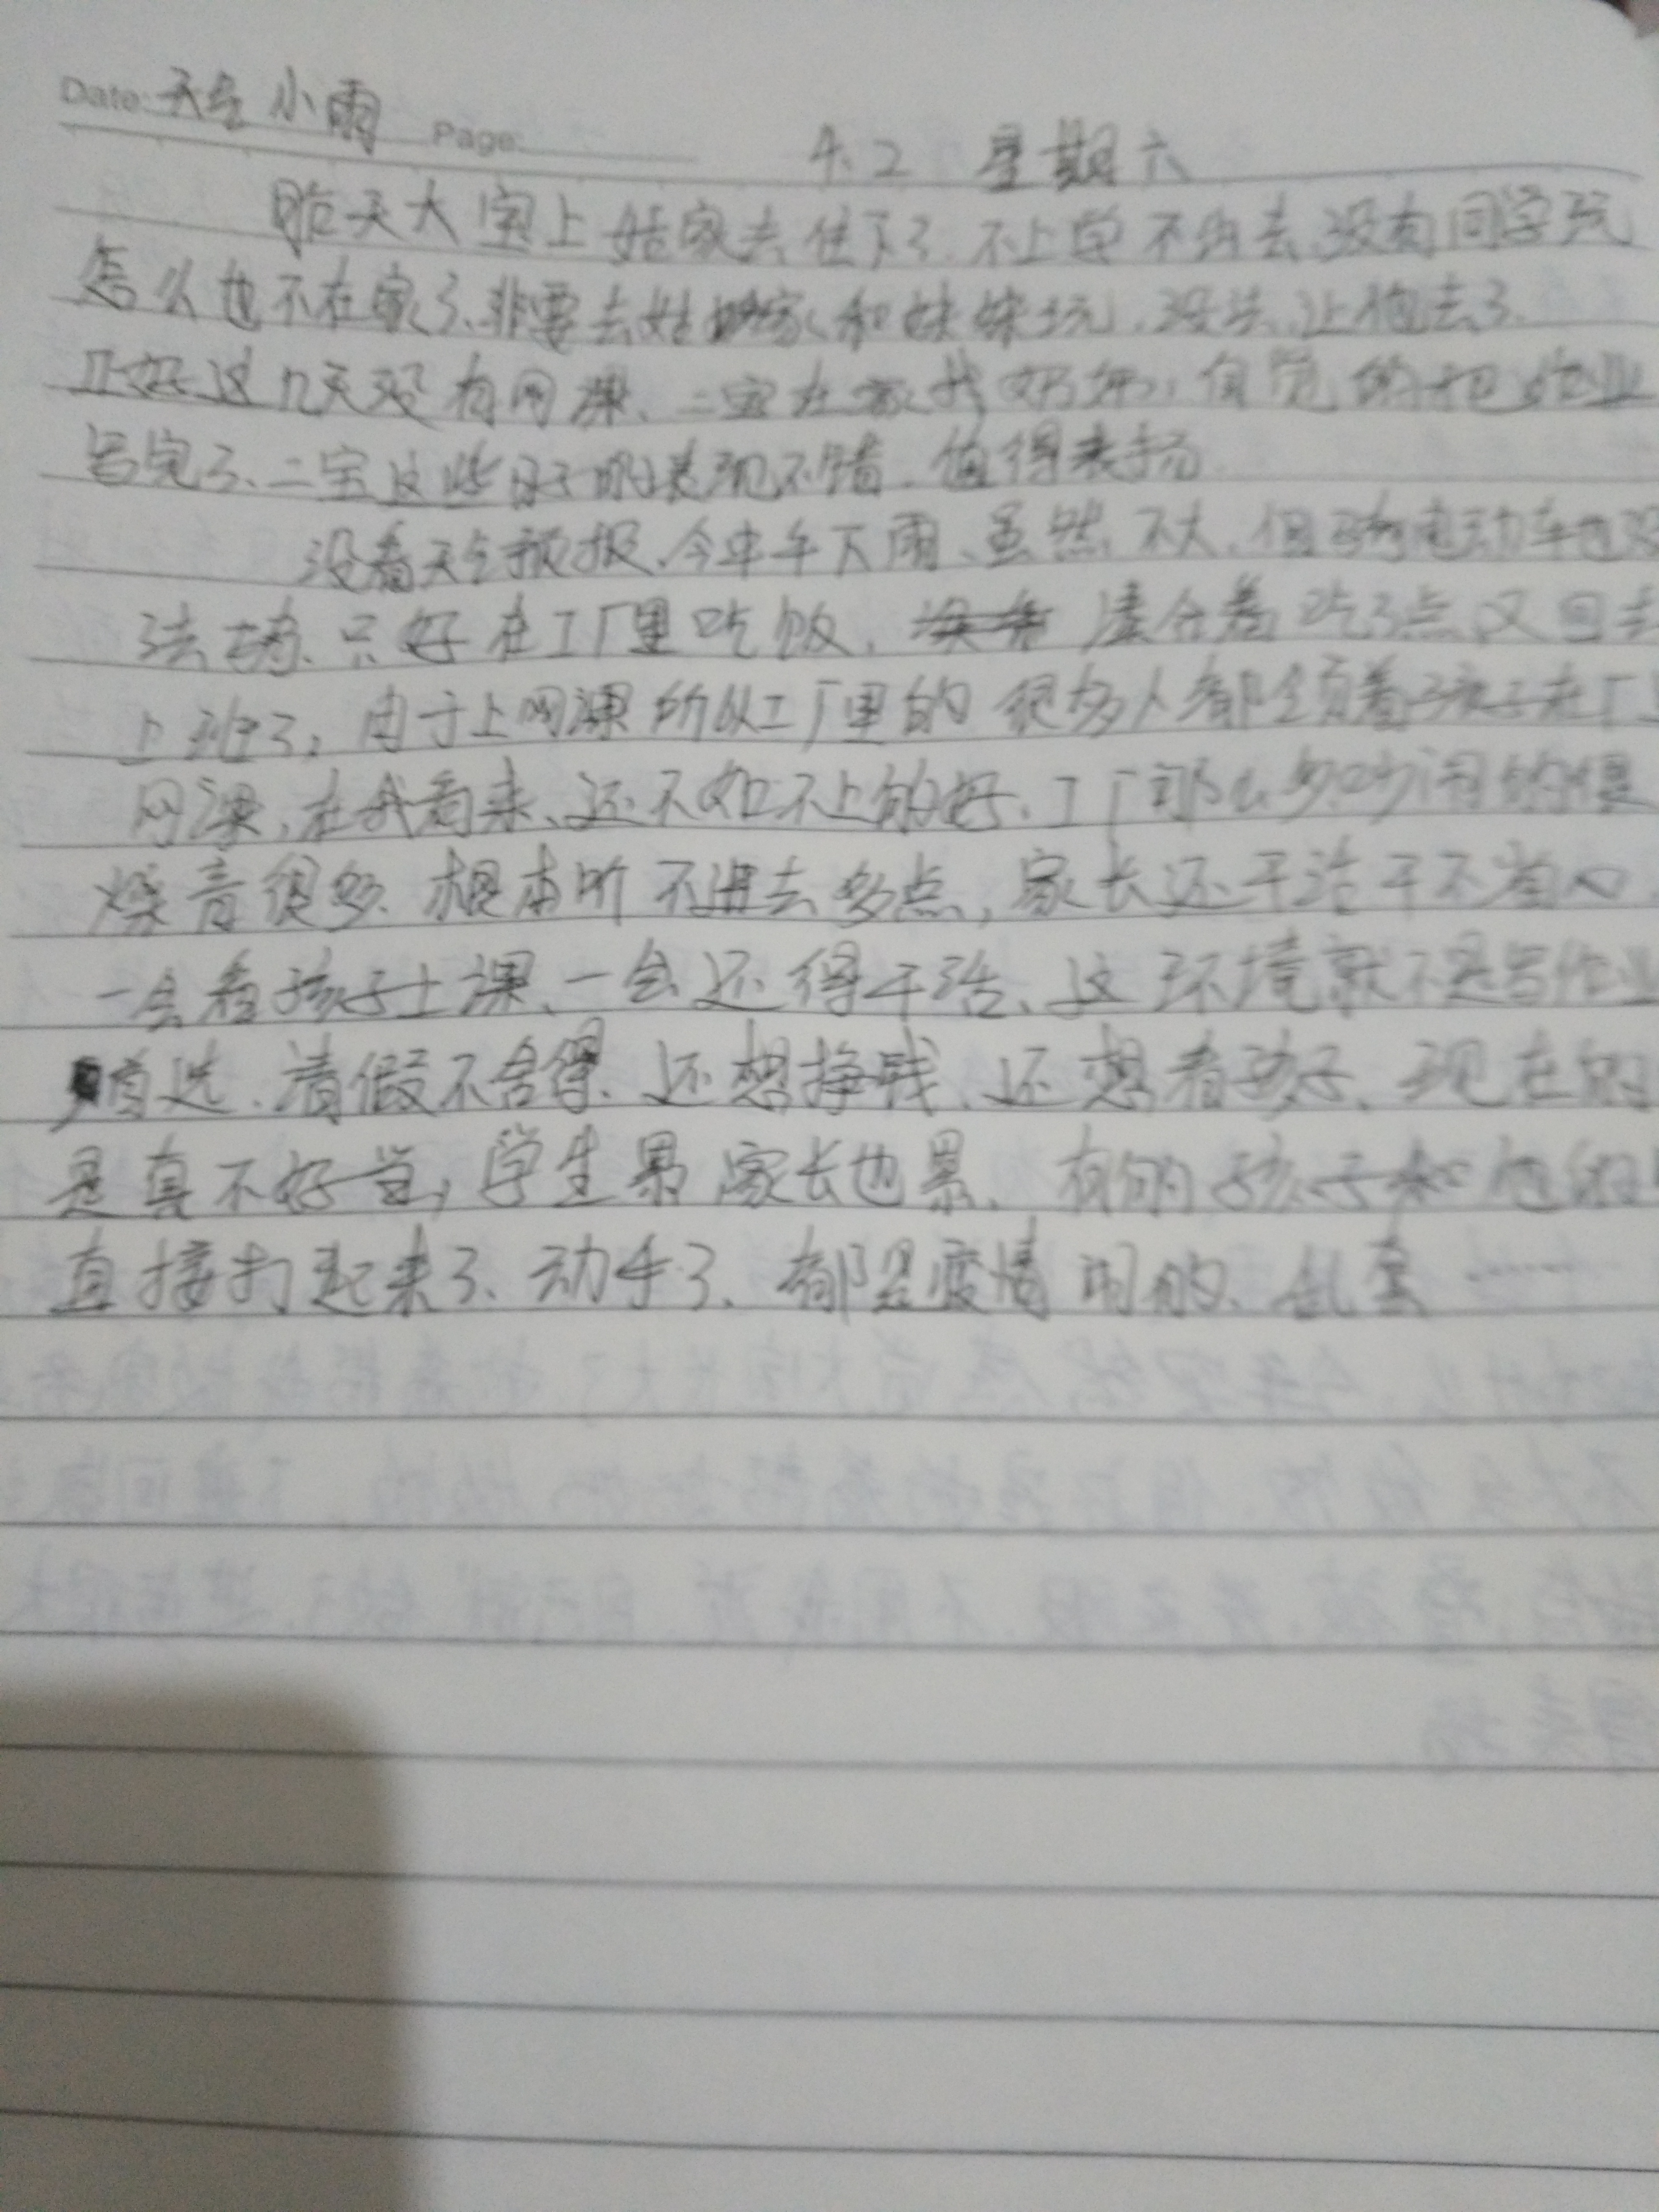 Date: 天气 小雨 Page:
4.2 星期六
昨天大宝上姑家去住下了.不上学不出去.没有同学玩
怎么也不在家了、非要去姑姑家和妹妹玩.没法.让他去了.
正好这几天没有网课、二宝在家我奶奶,自觉的把作业
写完了、二宝这些日子的表现不错.值得表扬.
没看天气预报.今中午下雨、虽然不大.但骑电动车也没
法骑.只好在工厂里吃饭. 凑合着吃了点又回去
上班了,由于上网课所以工厂里的很多人都领着孩子在厂
网课.在我看来、还不如不上的好、工厂那么吵吵闹的慢
燥音很多.根本听不进去多点,家长还干活干不省心.
一会看孩子上课、一会还得干活、这环境就不是写作业
首选.请假不舍得.还想挣钱、还想看孩子、现在的
是真不好当,学生累家长也累、有的孩子和他的
直接打起来了、动手了、都是疫情闹的、乱套……